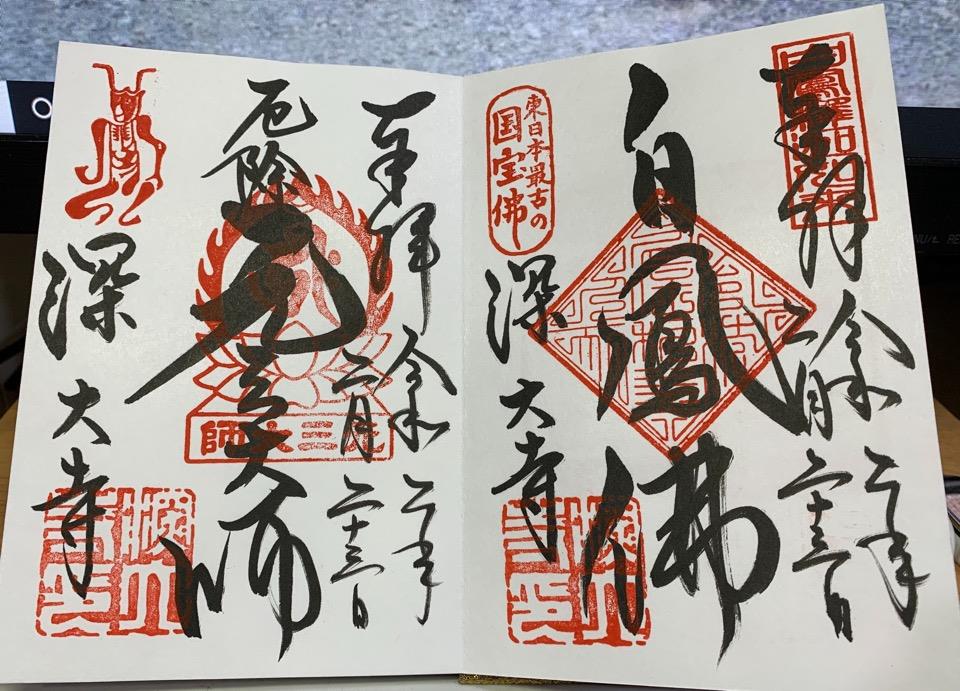 奉拝
令和二年
二月二十三日
白鳳佛
東日本最古の
国宝佛
深大寺
奉拝
令和二年
二月二十三日
厄除元三大師
師大三元
深大寺